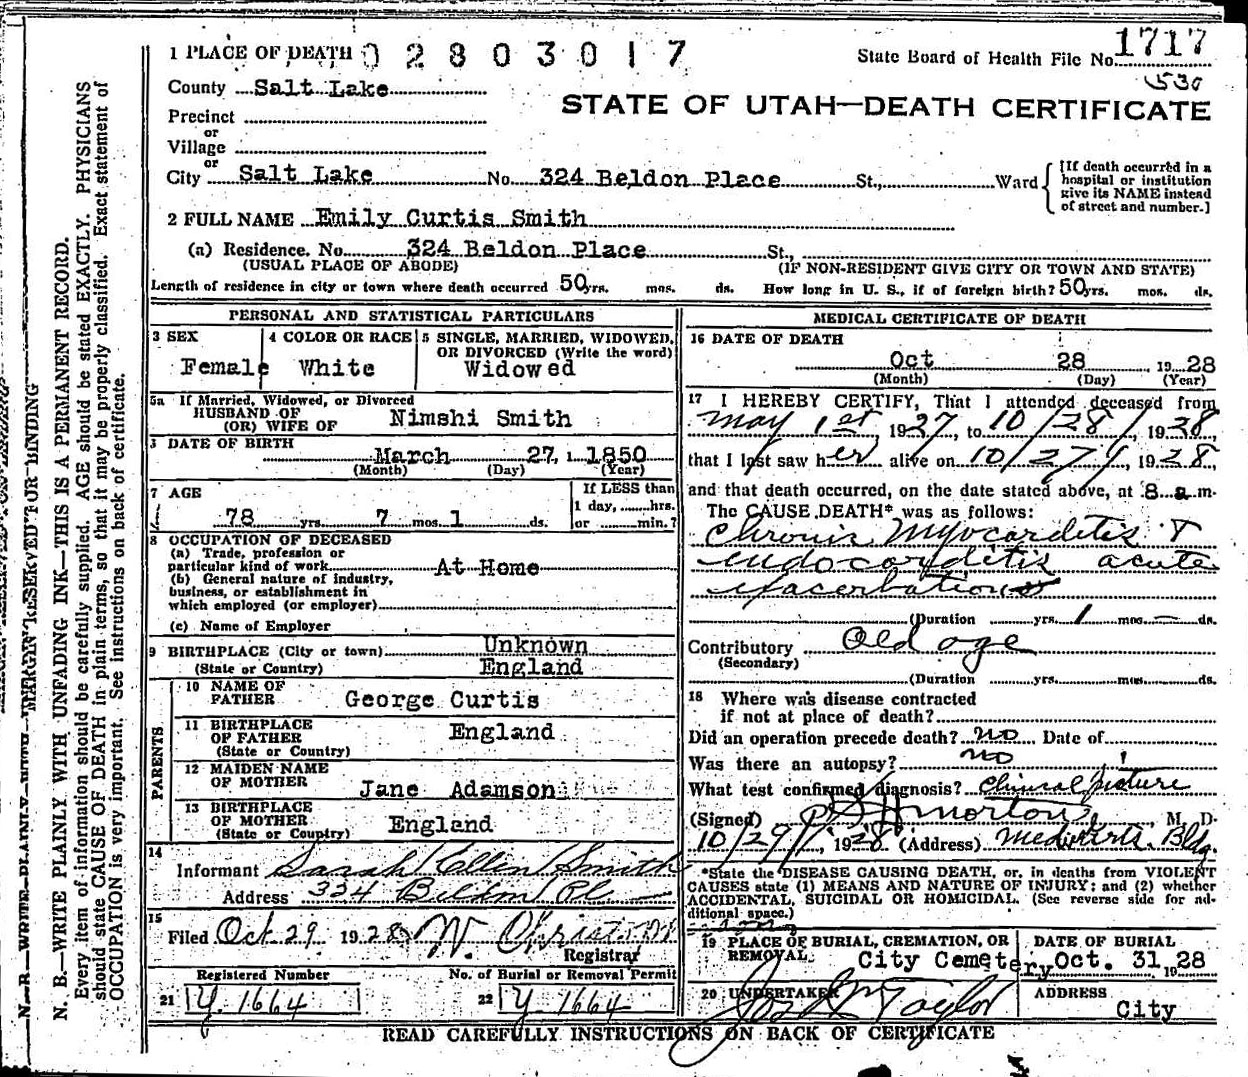 1 PLACE OF DEATH 02803017
State Board of Health File No. 1717
530
County Salt Lake
STATE OF UTAH—DEATH CERTIFICATE
Precinct
or
Village
or
City Salt Lake No. 324 Beldon Place St., Ward
[If death occurred in a hospital or institution give its NAME instead of street and number.]
2 FULL NAME Emily Curtis Smith
(a) Residence. No. 324 Beldon Place St.,
(USUAL PLACE OF ABODE) (IF NON-RESIDENT GIVE CITY OR TOWN AND STATE)
Length of residence in city or town where death occurred 50 yrs. mos. ds. How long in U. S., if of foreign birth? 50 yrs. mos. ds.
PERSONAL AND STATISTICAL PARTICULARS
3 SEX Female
4 COLOR OR RACE White
5 SINGLE, MARRIED, WIDOWED, OR DIVORCED (Write the word) Widowed
5a If Married, Widowed, or Divorced
HUSBAND OF
(OR) WIFE OF Nimshi Smith
DATE OF BIRTH
March 27, 1850
(Month) (Day) (Year)
7 AGE
78 yrs. 7 mos. 1 ds.
If LESS than
1 day, hrs.
or min.?
8 OCCUPATION OF DECEASED
(a) Trade, profession or
particular kind of work At Home
(b) General nature of industry,
business, or establishment in
which employed (or employer)
(c) Name of Employer
9 BIRTHPLACE (City or town) Unknown
(State or Country) England
PARENTS
10 NAME OF
FATHER George Curtis
11 BIRTHPLACE
OF FATHER England
(State or Country)
12 MAIDEN NAME
OF MOTHER Jane Adamson
13 BIRTHPLACE
OF MOTHER England
(State or Country)
14
Informant Sarah Ellen Smith
Address 324 Beldon Pl
15
Filed Oct 29 1928 W. Christ
Registrar
Registered Number
21 Y. 1664
No. of Burial or Removal Permit
22 Y. 1664
MEDICAL CERTIFICATE OF DEATH
16 DATE OF DEATH
Oct 28, 1928
(Month) (Day) (Year)
17 I HEREBY CERTIFY, That I attended deceased from
May 1st, 1927, to 10/28/, 1928,
that I last saw her alive on 10/27/, 1928,
and that death occurred, on the date stated above, at 8 a m.
The CAUSE DEATH* was as follows:
Chronic Myocarditis &
endocarditis acute
exacerbation
(Duration yrs. 1 mos. — ds.
Contributory Old age
(Secondary)
(Duration yrs. mos. ds.
18 Where was disease contracted
if not at place of death?
Did an operation precede death? no Date of
Was there an autopsy? no
What test confirmed diagnosis? Clinical picture
(Signed) Morton, M. D.
10/29/, 1928 (Address) Med. Arts. Bldg.
*State the DISEASE CAUSING DEATH, or, in deaths from VIOLENT
CAUSES state (1) MEANS AND NATURE OF INJURY; and (2) whether
ACCIDENTAL, SUICIDAL OR HOMICIDAL. (See reverse side for additional space.)
19 PLACE OF BURIAL, CREMATION, OR
REMOVAL, City Cemetery
DATE OF BURIAL
Oct. 31 1928
20 UNDERTAKER Jos Wm Taylor
ADDRESS
City
READ CAREFULLY INSTRUCTIONS ON BACK OF CERTIFICATE
MARGIN RESERVED FOR BINDING
N. B.—WRITE PLAINLY WITH UNFADING INK—THIS IS A PERMANENT RECORD.
Every item of information should be carefully supplied. AGE should be stated EXACTLY. PHYSICIANS
should state CAUSE OF DEATH in plain terms, so that it may be properly classified. Exact statement of
OCCUPATION is very important. See instructions on back of certificate.